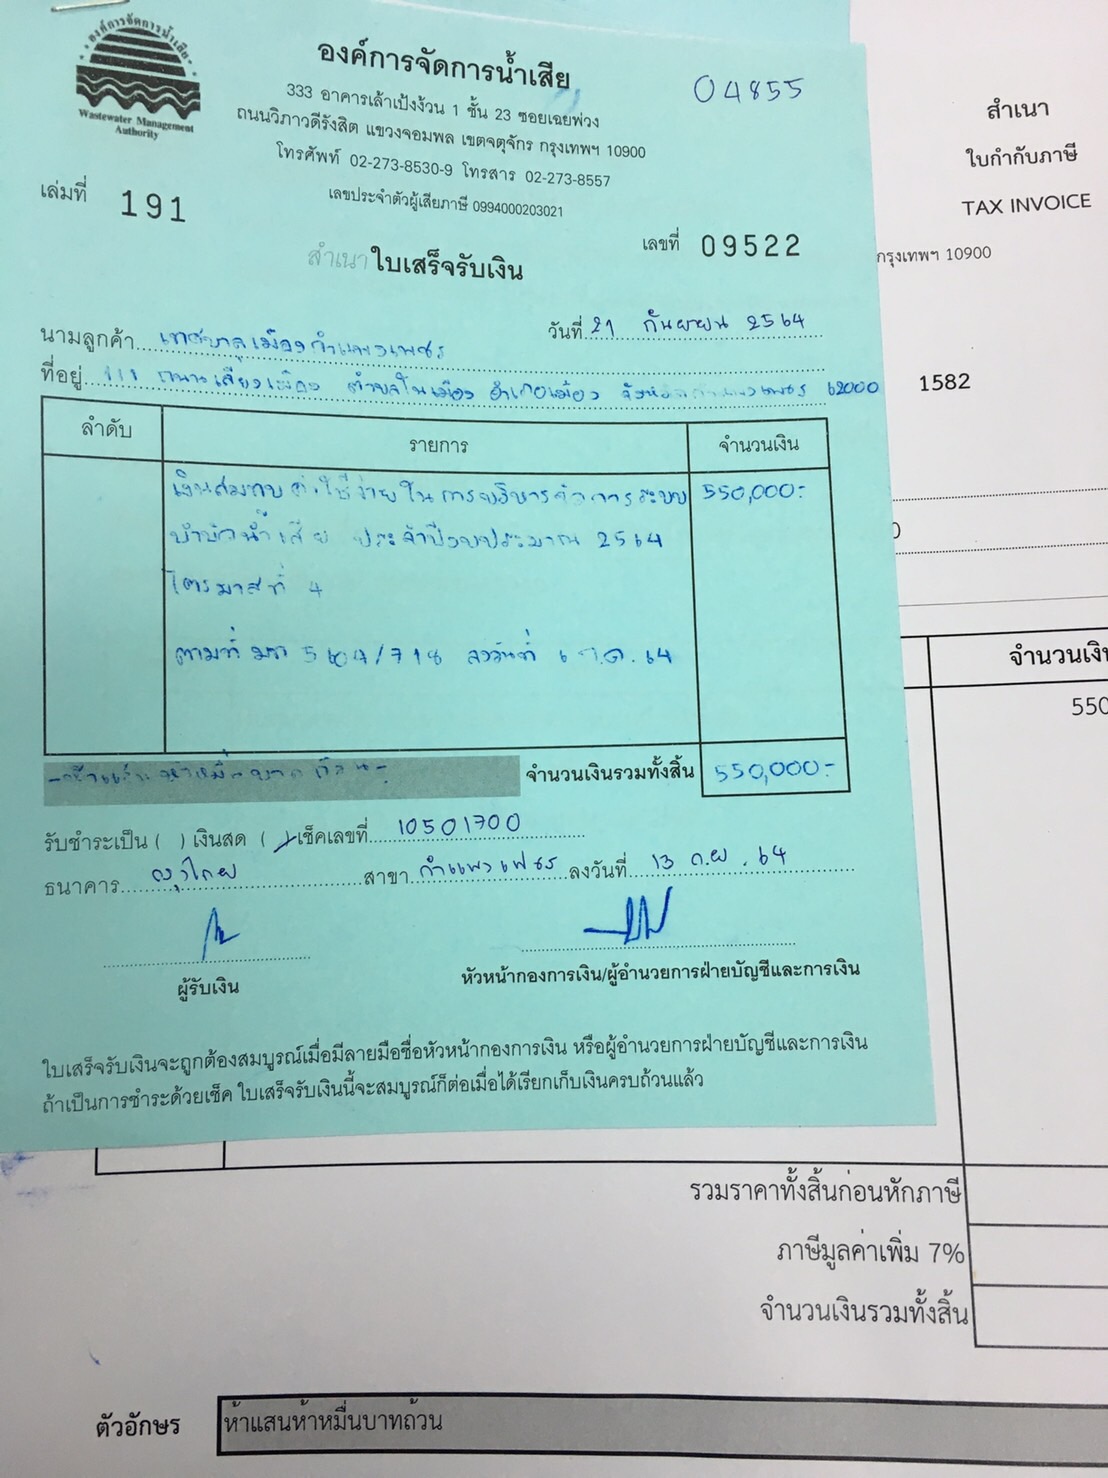 องค์การจัดการน้ำเสีย
Wastewater Management
Authority
องค์การจัดการน้ำเสีย
04855
333 อาคารเล้าเป้งง้วน 1 ชั้น 23 ซอยเฉยพ่วง
ถนนวิภาวดีรังสิต แขวงจอมพล เขตจตุจักร กรุงเทพฯ 10900
โทรศัพท์ 02-273-8530-9 โทรสาร 02-273-8557
เลขประจำตัวผู้เสียภาษี 0994000203021
เล่มที่ 191
เลขที่ 09522
สำเนา ใบเสร็จรับเงิน
วันที่ 21 กันยายน 2564
นามลูกค้า เทศบาลเมืองกำแพงเพชร
ที่อยู่ 111 ถนน ตำบลในเมือง อำเภอเมือง จังหวัดกำแพงเพชร 62000
ลำดับ รายการ จำนวนเงิน
เงินสมทบค่าใช้จ่ายในการบริหารจัดการระบบ 550,000.-
บำบัดน้ำเสีย ประจำปีงบประมาณ 2564
ไตรมาสที่ 4
ตามที่ ลงวันที่ 6 64
-ห้าแสนห้าหมื่นบาทถ้วน-
จำนวนเงินรวมทั้งสิ้น 550,000.-
รับชำระเป็น ( ) เงินสด ( ) เช็คเลขที่ 10501700
ธนาคาร กรุงไทย สาขา กำแพงเพชร ลงวันที่ 13 ก.ย. 64
ผู้รับเงิน
หัวหน้ากองการเงิน/ผู้อำนวยการฝ่ายบัญชีและการเงิน
ใบเสร็จรับเงินจะถูกต้องสมบูรณ์เมื่อมีลายมือชื่อหัวหน้ากองการเงิน หรือผู้อำนวยการฝ่ายบัญชีและการเงิน
ถ้าเป็นการชำระด้วยเช็ค ใบเสร็จรับเงินนี้จะสมบูรณ์ก็ต่อเมื่อได้เรียกเก็บเงินครบถ้วนแล้ว
สำเนา
ใบกำกับภาษี
TAX INVOICE
กรุงเทพฯ 10900
1582
จำนวนเงิน
550
รวมราคาทั้งสิ้นก่อนหักภาษี
ภาษีมูลค่าเพิ่ม 7%
จำนวนเงินรวมทั้งสิ้น
ตัวอักษร ห้าแสนห้าหมื่นบาทถ้วน